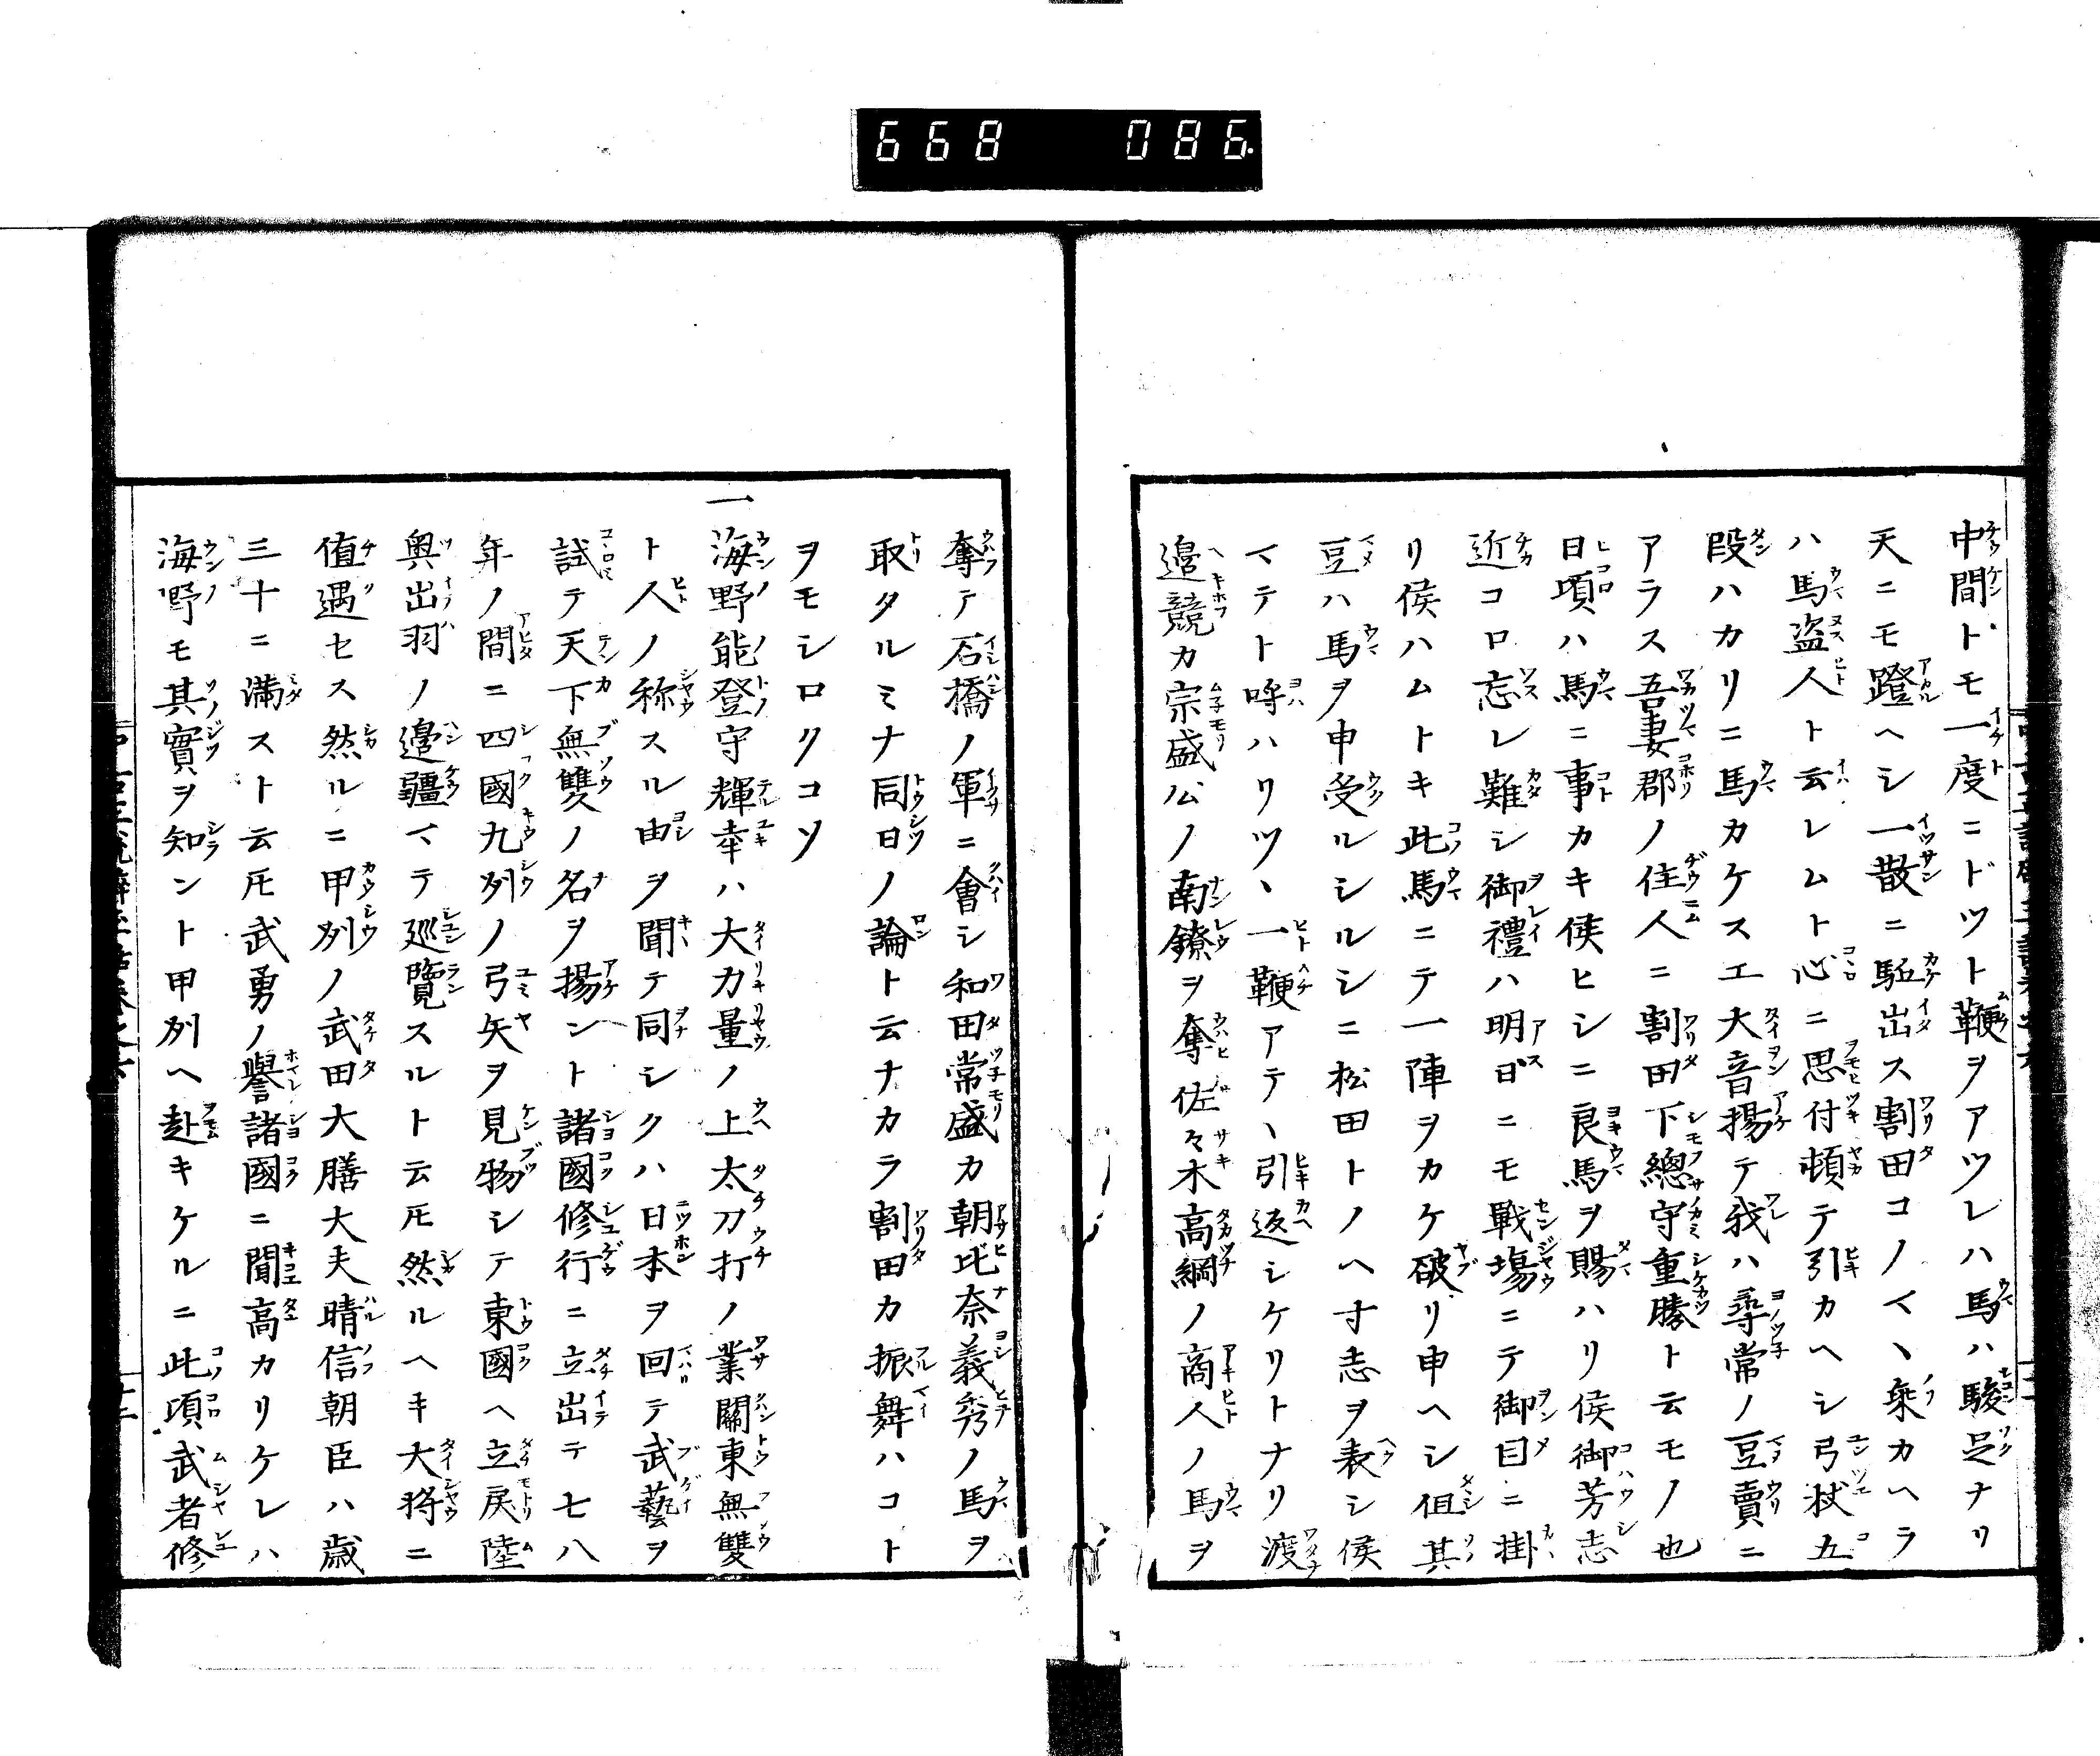 668 086
中間トモ一度ニドツト鞭ヲアツレハ馬ハ駿足ナリ
天ニモ蹬ヘシ一散ニ駈出ス割田コノマヽ乗カヘラ
ハ馬盗人ト云レムト心ニ思付頓テ引カヘシ弓杖五
段ハカリニ馬カケスエ大音揚テ我ハ尋常ノ豆賣ニ
アラス吾妻郡ノ住人ニ割田下總守重勝ト云モノ也
日項ハ馬ニ事カキ侯ヒシニ良馬ヲ賜ハリ侯御芳志
近コロ忘レ難シ御禮ハ明日ニモ戰塲ニテ御目ニ掛
リ侯ハムトキ此馬ニテ一陣ヲカケ破リ申ヘシ但其
豆ハ馬ヲ申受ルシルシニ松田トノヘ寸志ヲ表シ侯
マテト呼ハリツヽ一鞭アテヽ引返シケリトナリ渡
邉競カ宗盛公ノ南鐐ヲ奪佐々木高綱ノ商人ノ馬ヲ
奪テ石橋ノ軍ニ會シ和田常盛カ朝比奈義秀ノ馬ヲ
取タルミナ同日ノ論ト云ナカラ割田カ振舞ハコト
ヲモシロクコソ
一海野能登守輝幸ハ大力量ノ上太刀打ノ業關東無雙
ト人ノ称スル由ヲ聞テ同シクハ日本ヲ回テ武藝ヲ
試テ天下無雙ノ名ヲ揚ント諸國修行ニ立出テ七八
年ノ間ニ四國九州ノ弓矢ヲ見物シテ東國ヘ立戻陸
奥出羽ノ邉疆マテ巡覽スルト云𪜈然ルヘキ大将ニ
値遇セス然ルニ甲州ノ武田大膳大夫晴信朝臣ハ歳
三十ニ満スト云𪜈武勇ノ譽諸國ニ聞高カリケレハ
海野モ其實ヲ知ント甲州ヘ赴キケルニ此項武者修